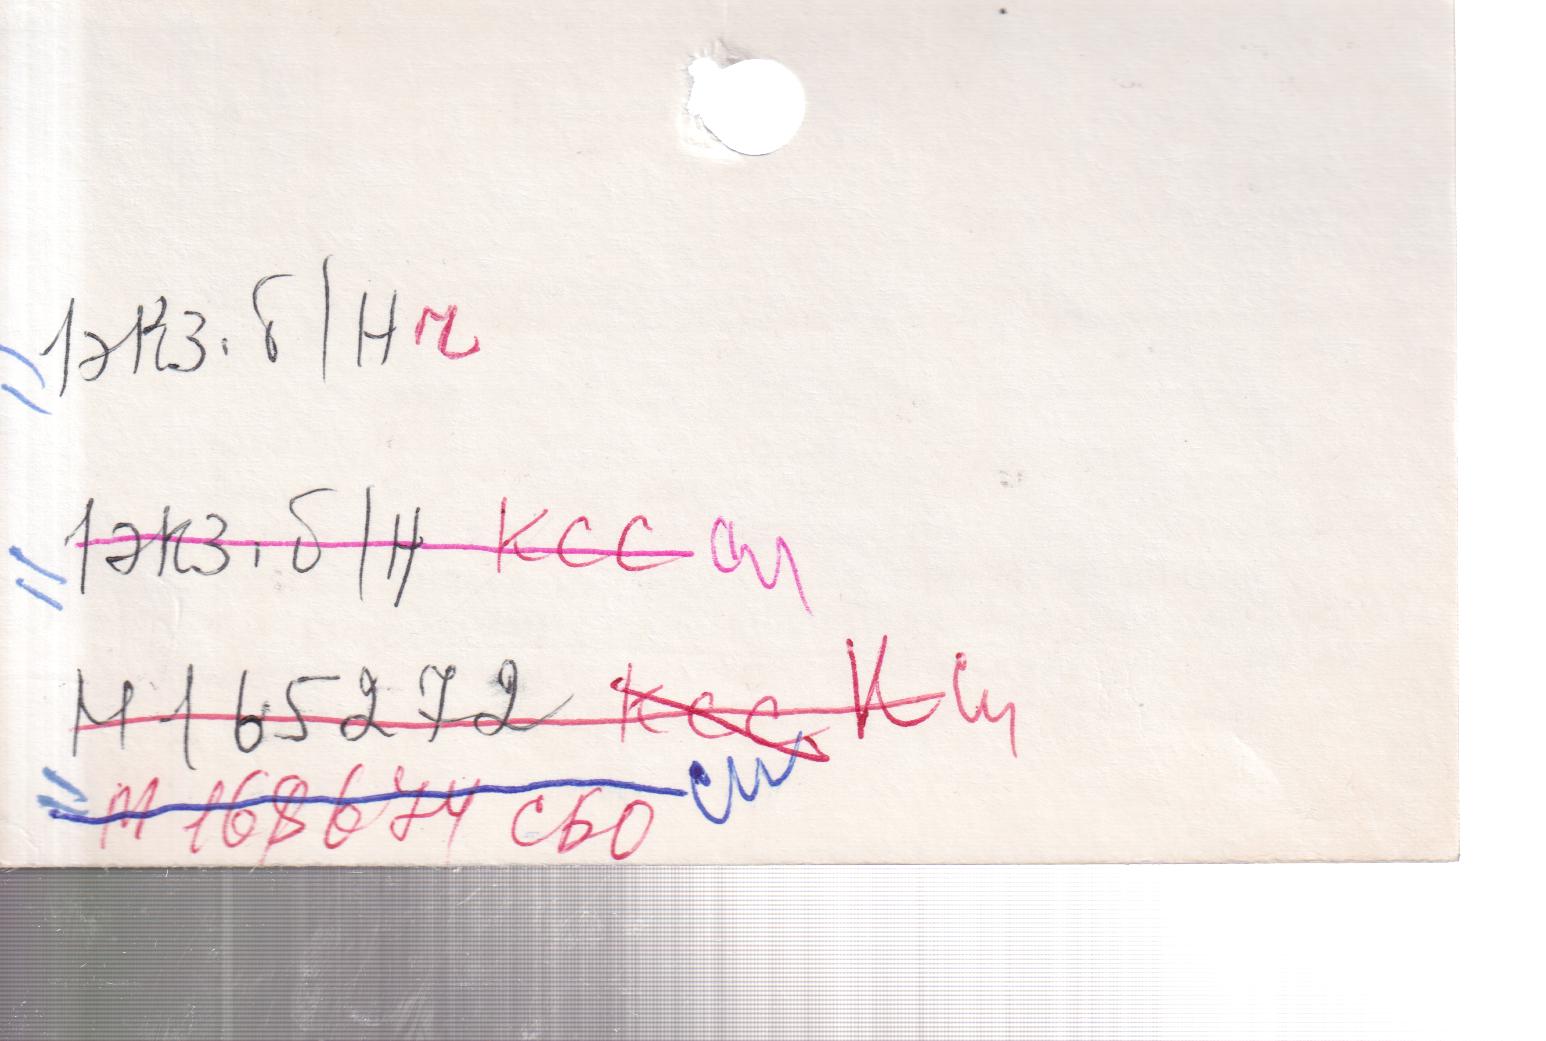 1экз. б/н ч
1экз. б/н КСС Сц
М 165272 КСС К Сц
М 168674 СБО Сц